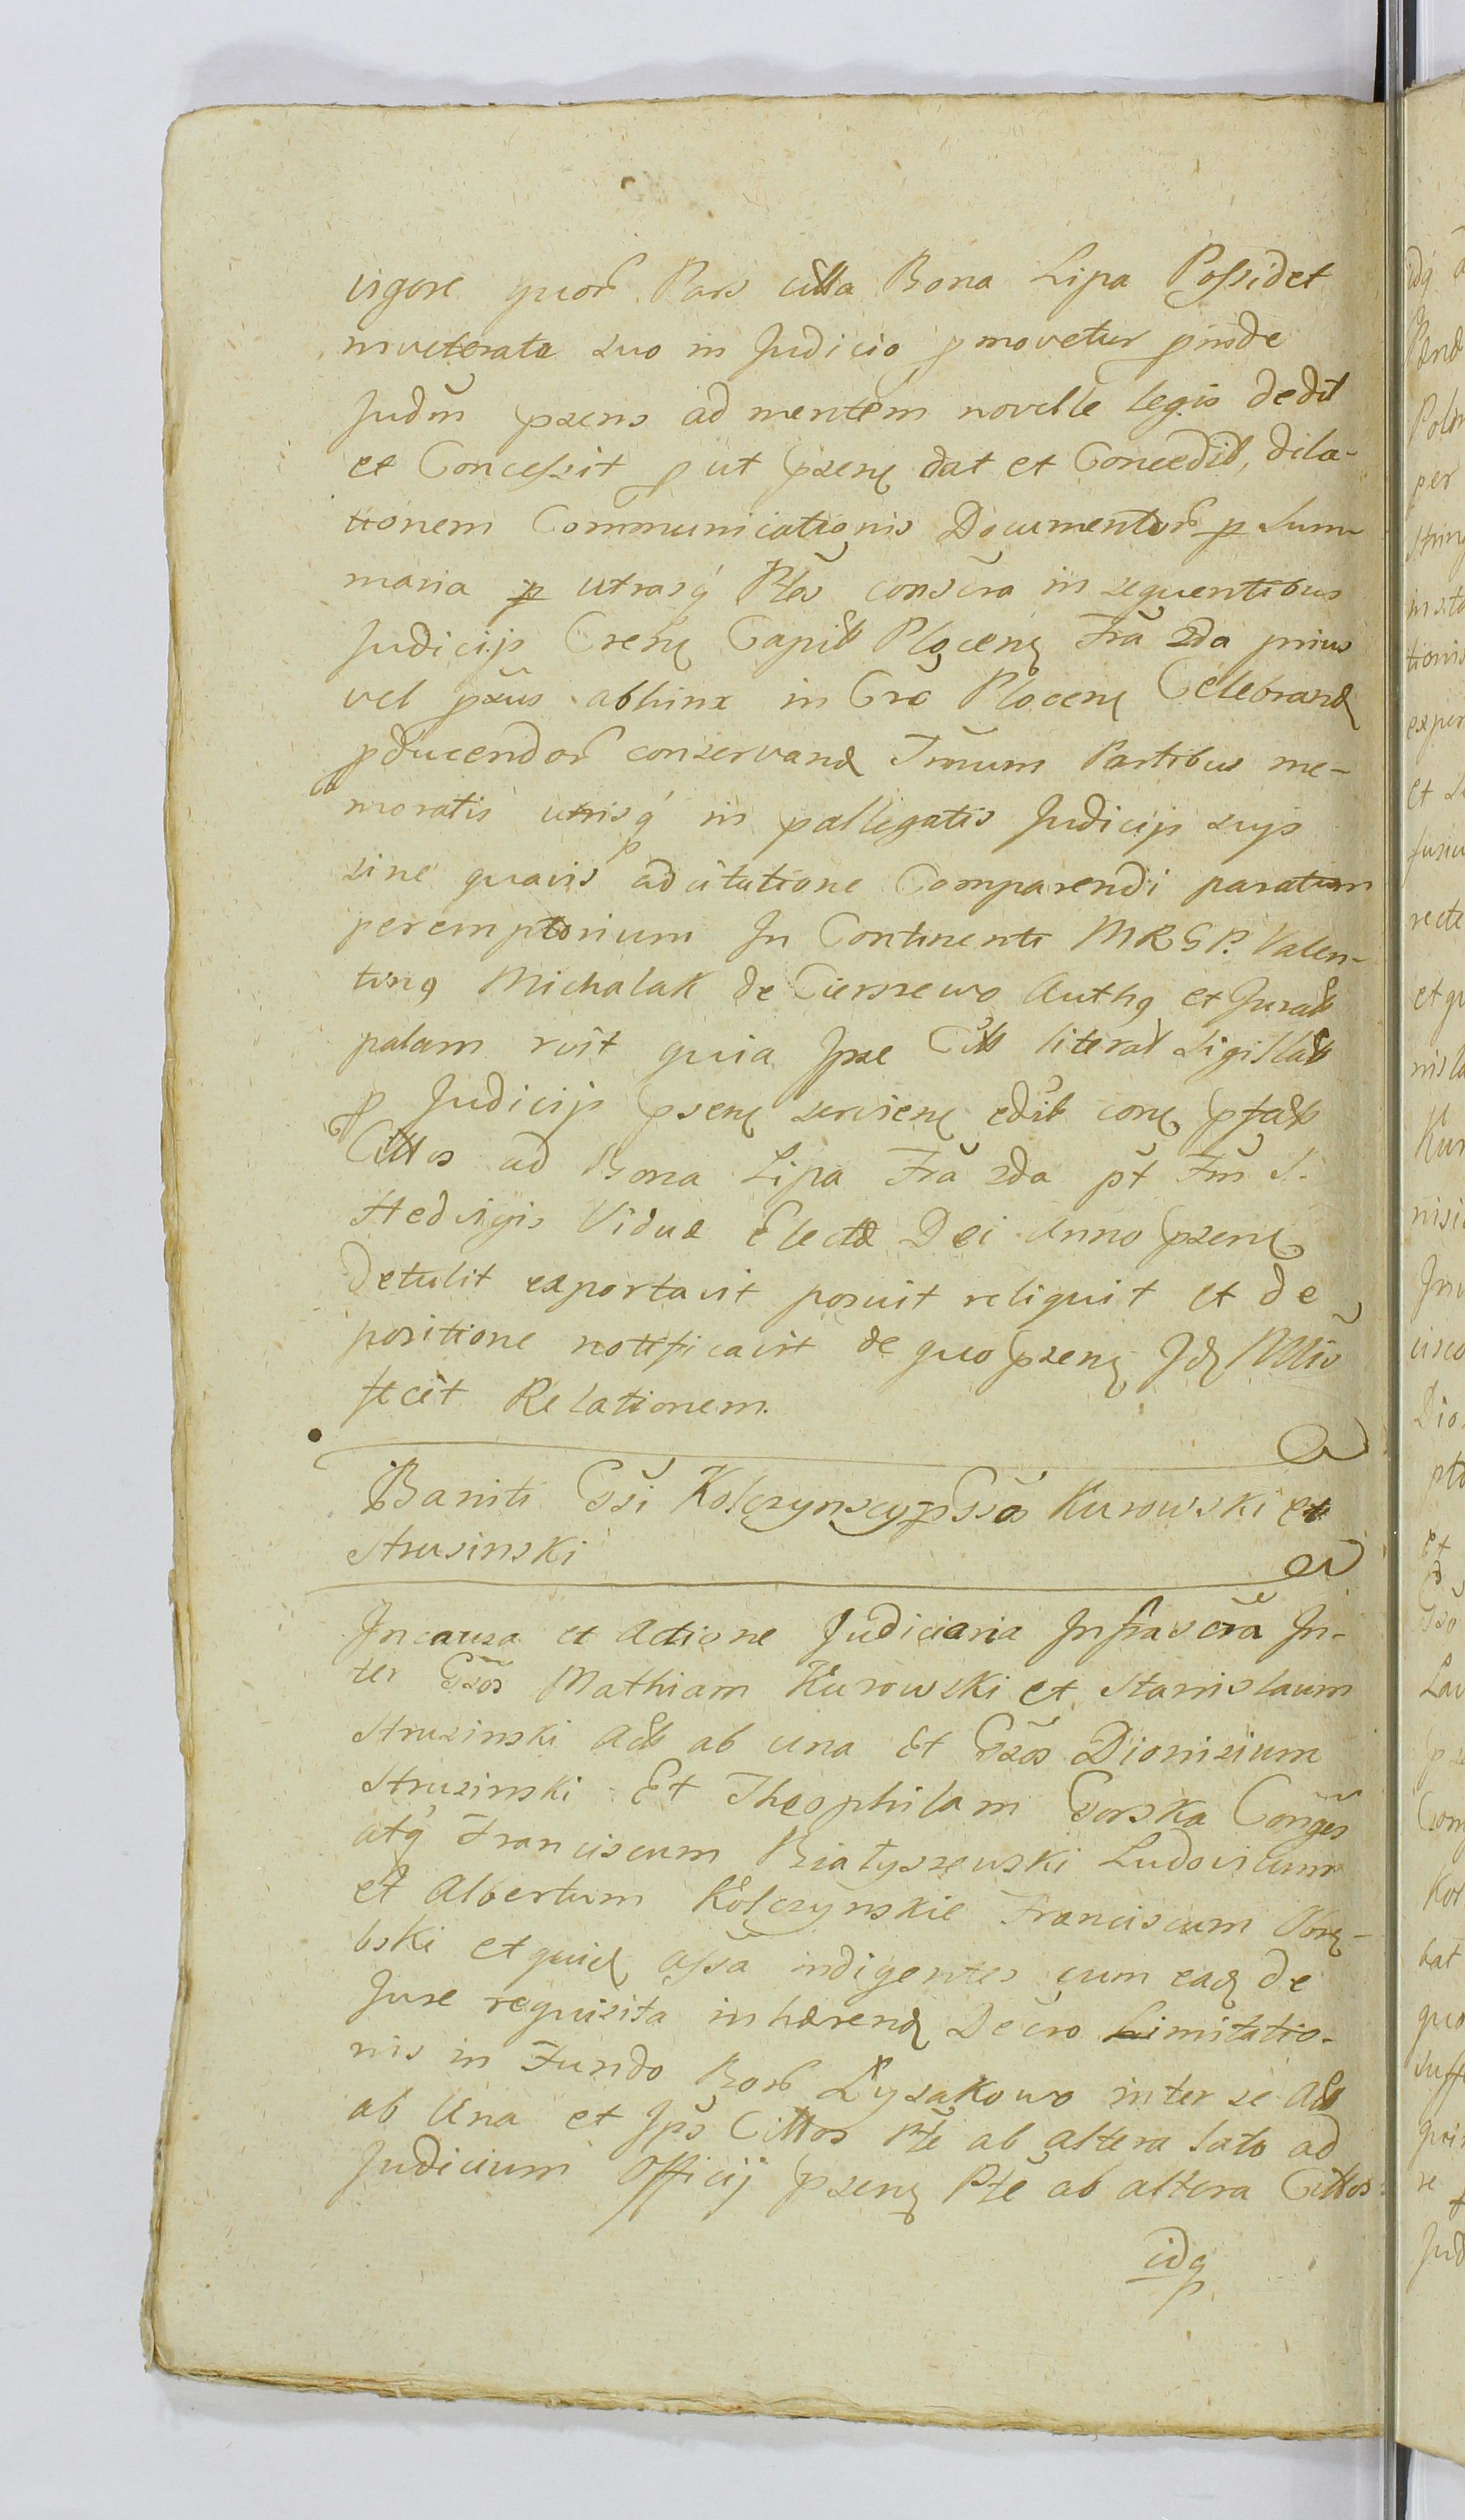 vigore quor Pars citta Bona Lipa Possidet
inveterata suo in Judicio pmovetur pinde
Judm psens ad mentem novelle legis dedit
et Concessit put psen dat et Concedit, dila-
tionem Communicationis Documentor p Sum
maria p utrasq Ptes conscra in sequentibus
Judicijs Cren Capit Plocen Fra 2da prius
vel pxus abhinc in Crc Plocen Celebrand
pducendor conservand Tmum Partibus me-
moratis utrisq in pallegatis Judicijs suis
sine quavis adcitatione Comparendi paratum
peremptorium In Continenti MRGP. Valen-
tinq Michalak de Cierszewo Authq et Jurat
palam rvit quia Ipse Citt literat Sigillat
p Judicijs psen servien edit con ptat
Cittos ad Bona Lipa Fra 2da pt Fm S.
Hedvigis Viduæ Electæ Dei Anno psen
Detulit exportavit posuit reliquit et de
positione notificavit de quo psen Id Mlis
fecit Relationem.
Baniti Gsi Kolczynscy p Gsos Kurowski et
Strusinski
In causa et Actione Judiciaria Infrascra In-
ter Gsos Mathiam Kurowski et Stanislaum
Strusinski Act ab una Et Gsos Dionisium
Strusinski Et Theophilam Gorska Conges
atq Franciscum Białyszewski Ludovicum
et Albertum Kolczynskie Franciscum
bski et quid assa indigentes cum ead de
Jure requisita inhærend Decro Limitatio-
nis in Fundo Bor Łysakowo inter se Act
ab Una et Ips Cittos Pte ab altera lato ad
Judicium Officij psen Pte ab altera Cittos
idq